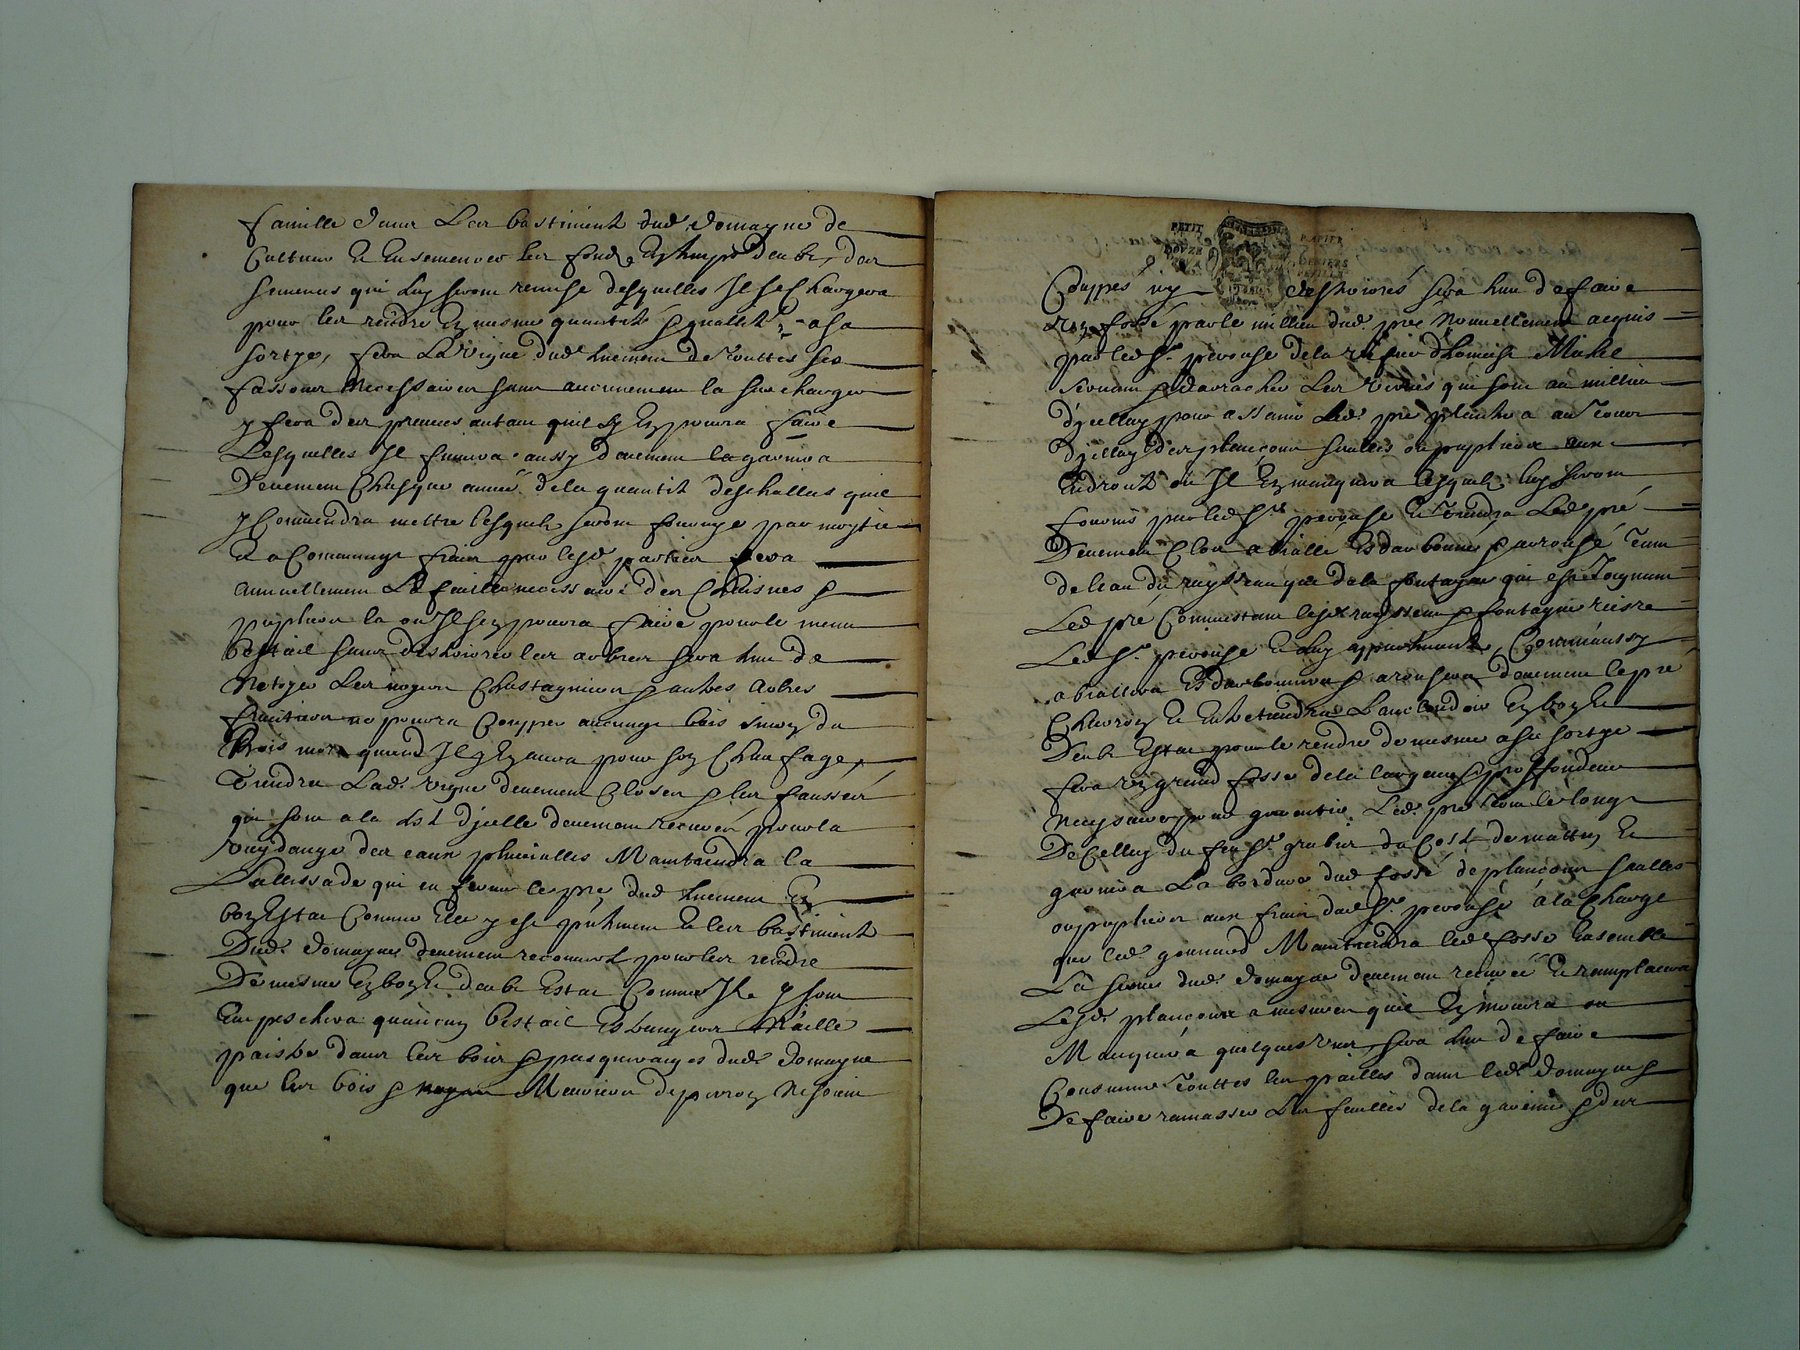 famille dans Les bastiment dud domayne de
Cultiver Et Ensemencer les fonds En temps deub, des
semences qui Luy seront remise desquelles Il se Chargera
pour les rendre En mesme quantité & quallité a sa
sortye, fera La vigne dud tenement de touttes ses
fassons Necessaires sans aucunement la surcharger
y fera des preuves autant quil sy En pourra faire
Lesquelles Il fumera aussy deuement la garnira
Deuement Chasque année de la quantité deschallas quil
y Conviendra mettre lesquels seront fournys par moytié
Et a Communs frais par lesd parties fera
annuellement La feuille necessaire des Chaisnes &
pupliers la ou Il sen pourra faire pour le menu
Bestail sans deshonorer les arbres sera tenu de
Netoyer Les noyers Chastagniers & autres Arbres
fruitiers ne pourra Coupper aucungs bois sinon du
Bois mort quand Il y En aura pour son Chaufage,
Tiendra Lad. vigne deuement Close & les faussés
qui sont a la d'jcelle deuement recurés pour la
vuydange des eaux pluvialles Maintiendra la
Pallissade qui en ferme le pré dud tenement En
bon Estat Comme Elle y est présentement Et les bastiment
Dud. domayne deuement recouvert pour les rendre
De mesme En bon Et deub Estat Comme Ils y sont
Empeschera quaucung bestail Estranger Naille
paistre dans les bois & pasqueraiges dud domayne
que les bois & Meuriers de perron Ne soient
PETIT PAPIER
DOUZE DENIERS
LA FEUILLE
Couppés ny deshonorés sera tenu de faire
Un fossé par le millieu dud. pré Nouvellement acquis
par led Sr. perouse de la d'honeste Michel
& darracher Les Vernes qui sont au millieu
d'jcelluy pour assainir Led. pré plantera au tour
Djcelluy des plançons saulles ou pupliers aux
Endroits ou Il En manquera lesquels luy seront
fournis par led Sr. perouse Et tiendra Led pré
Deuement Clos & arrousé tant
de leau du ruysseau que de la fontayne qui est Joignant
Led pré Connestant lesd ruysseau & fontayne
Led Sr. perouse Comme aussy
& arousera deuement le pré
Chevron Et Entretiendra En bon Et
Deub Estat pour le rendre de mesme a sa sortye
fera Un grand fosse de la largeur & proffondeur
Necessaire pour garentir Led. pré tout le long
De Celluy du feu Sr. du Costé de mattin Et
garnira La bordure dud fossé de plançons saulles
ou pupliers aux frais dud Sr. perouse, a la Charge
que led gounnod Maintiendra led fosse Ensemble
La dud domayne deuement recuré Et remplacera
Lesd plançons a mesure quil En mourra ou
Manquera quelques uns, sera tenu de faire
Consumer touttes les pailles dans led domayne &
De faire ramasser Les feuilles de la garenne & des